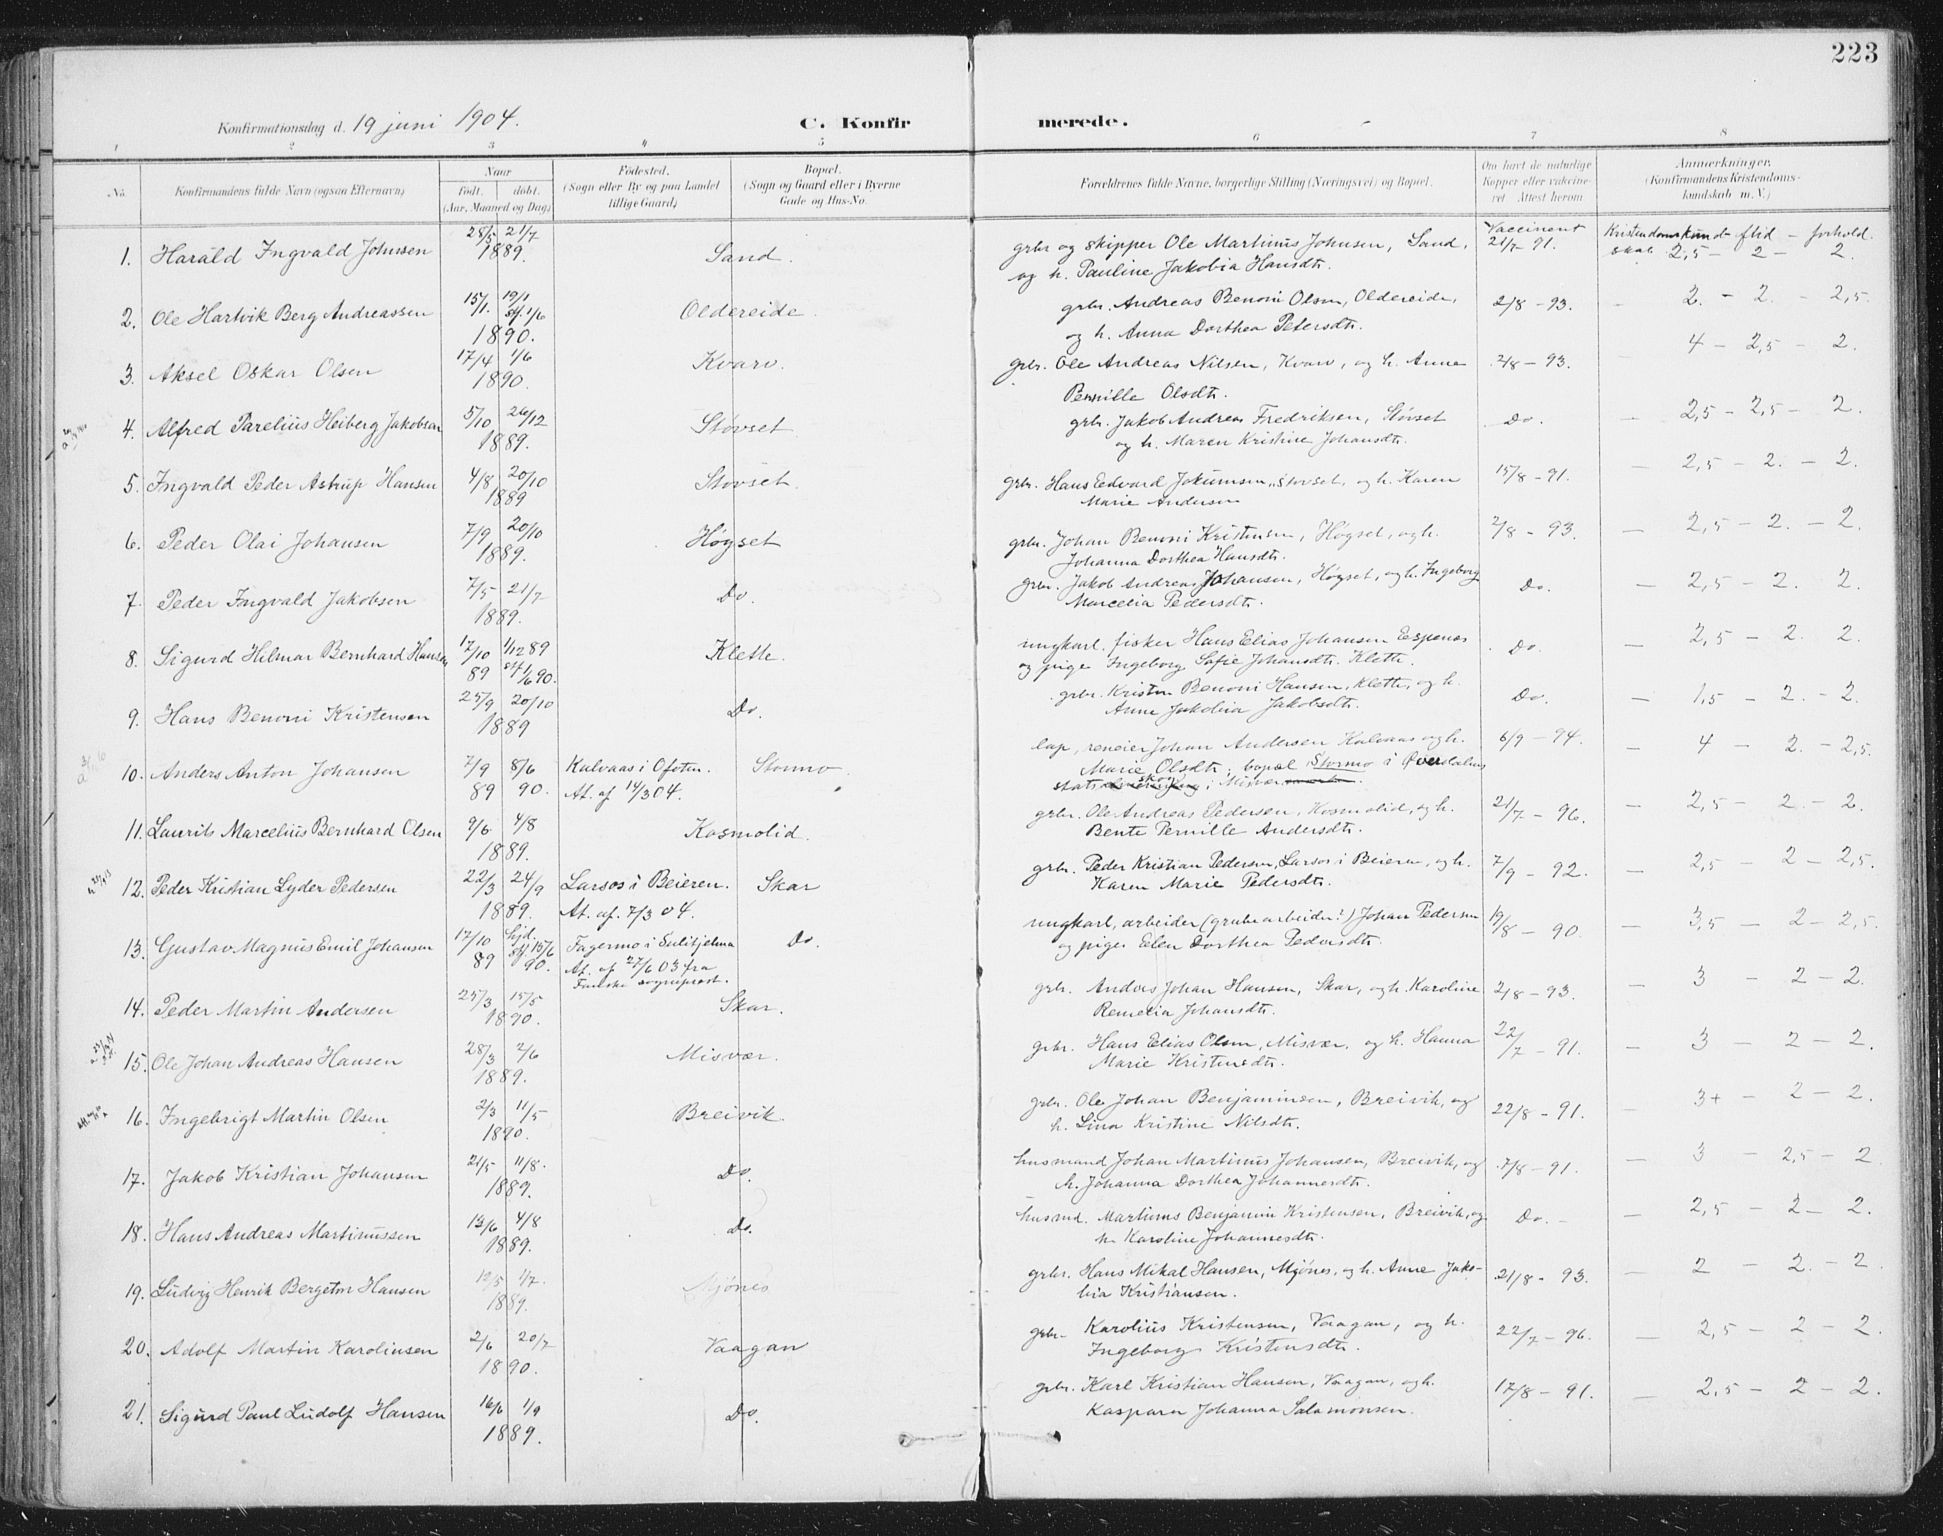 223
Konfirmationsdag d. 19 juni 1904.
C. Konfirmerede.
1 2 3 4 5 6 7 8
No.
Konfirmandens fulde Navn (ogsaa Efternavn)
Naar
født. døbt.
(Aar, Maaned og Dag)
Fødested.
(Sogn eller By og paa Landet
tillige Gaard)
Bopæl.
(Sogn og Gaard eller i Byerne
Gade og Hus-No.
Forældrenes fulde Navne, borgerlige Stilling (Næringsvei) og Bopæl.
Om havt de naturlige
Kopper eller vaccine-
ret. Attest herom
Anmærkninger.
(Konfirmandens Kristendoms-
kundskab m. V.)
Vaccineret
Kristendomskund- flid - forhold.
skab
1. Harald Ingvald Johnsen 28/5 21/7 1889. Sand.
grbr og skipper Ole Martinus Johnsen, Sand,
og h. Pauline Jakobia Hansdtr. 21/7-91. 2,5 - 2 - 2.
2. Ole Hartvik Berg Andreassen 15/1. 19/1 st. 1/6 1890. Oldereide.
grbr. Andreas Benoni Olsen, Oldereide,
og h. Anna Dorthea Petersdtr. 2/8-93. - 2. - 2. - 2,5.
3. Aksel Oskar Olsen 17/4 1/6 1890. Kvarv.
grbr. Ole Andreas Nilsen, Kvarv, og h. Anne
Pernille Olsdtr. 2/8-93. - 4 - 2,5 - 2.
4. Alfred Parelius Heiberg Jakobsen 5/10 26/12 1889. Støvset.
grbr. Jakob Andreas Fredriksen, Støvset
og h. Maren Kristine Johansdtr. Do. - 2,5 - 2,5 - 2.
5. Ingvald Peder Astrup Hansen 4/8 20/10 1889 Støvset.
grbr. Hans Edvard Jokumsen, Støvset, og h. Karen
Marie Andersen 15/8-91. - 2,5 - 2. - 2.
6. Peder Olai Johansen 7/9 20/10 1889. Høgset
grbr. Johan Benoni Kristensen, Høgset, og h.
Johanna Dorthea Hansdtr. 2/8-93. - 2,5 - 2. - 2.
7. Peder Ingvald Jakobsen 7/5 21/7 1889. Do.
grbr. Jakob Andreas Johansen, Høgset, og h. Ingeborg
Marcelia Pedersdtr. Do. - 2,5 - 2. 2.
8. Sigurd Hilmar Bernhard Hansen 17/10 89 1/12 89 st. 1/6 90. Klette.
ungkarl, fisker Hans Elias Johansen Espenes
og pige Ingeborg Sofie Johansdtr. Klette. Do. - 2,5 - 2. 2.
9. Hans Benoni Kristensen 25/9 20/10 1889 Do.
grbr. Kristen Benoni Hansen, Klette, og h.
Anne Jakobia Jakobsdtr. Do. - 1,5 - 2. - 2.
10. Anders Anton Johansen 7/9 89 8/6 90. Kalvaas i Ofoten. At. af 14/3 04. Stormo.
lap, reneier Johan Andersen Kalvaas og h.
Marie Olsdtr; bopæl Stormo i Øverdalens
stats skog i Misvær. 6/9-94. - 4 - 2. - 2,5.
11. Laurits Marcelius Bernhard Olsen 9/6 4/8 1889. Kosmolid.
grbr. Ole Andreas Pedersen, Kosmolid, og h.
Bente Pernille Andersdtr. 21/7-96. - 2,5 - 2. - 2.
12. Peder Kristian Lyder Pedersen 22/3 24/9 1889. Larsos i Beieren. At. af. 7/3 04. Skar
grbr. Peder Kristian Pedersen, Larsos i Beieren, og h.
Karen Marie Pedersdtr. 7/9-92. - 2,5 - 2 - 2,5.
13. Gustav Magnus Emil Johansen 17/10 89 hjd. st. 15/6 90. Fagermo i Sulitjelma At. af 27/6 03 fra Fauske sogneprest. Do.
ungkarl, arbeider (grubearbeider?) Johan Pedersen
og pige Elen Dorthea Pedersdtr. 19/8-90. - 3,5 - 2 - 2,5.
14. Peder Martin Andersen 25/3 15/5 1890. Skar.
grbr. Anders Johan Hansen, Skar, og h. Karoline
Remelia Johansdtr. 2/8-93. - 3 - 2 - 2.
15. Ole Johan Andreas Hansen 28/3 2/6 1889. Misvær.
grbr. Hans Elias Olsen, Misvær, og h. Hanna
Marie Kristensdtr. 22/7-91. - 3 - 2 - 2.
16. Ingebrigt Martin Olsen 2/3 11/5 1890. Breivik.
grbr. Ole Johan Benjaminsen, Breivik, og
h. Lina Kristine Nilsdtr. 22/8-91. - 3+ - 2 - 2.
17. Jakob Kristian Johansen 21/5 11/8. 1889. Do.
husmand Johan Martinus Johansen, Breivik, og
h. Johanna Dorthea Johannesdtr. 7/8-91. - 3 - 2,5 - 2
18. Hans Andreas Martinussen 13/6 4/8 1889. Do.
husmd. Martinus Benjamin Kristensen, Breivik, og
h. Karoline Johannesdtr. Do. - 2,5 - 2 - 2.
19. Ludvig Henrik Bergeton Hansen 12/5 1/7. 1889. Mjönes
grbr. Hans Mikal Hansen, Mjönes, og h. Anne Jako-
bia Kristiansen. 21/8-93. 2 - 2. - 2
20. Adolf Martin Karoliusen 2/6 20/7 1890. Vaagan
grbr- Karolius Kristensen, Vaagan, og h.
Ingeborg Kristensdtr. 22/7-96. - 2,5 - 2 - 2.
21. Sigurd Paul Ludolf Hansen 16/6 1/9 1889. Do.
grbr. Karl Kristian Hansen, Vaagan, og h.
Kaspara Johanna Salamonsen. 17/8-91. - 2,5 - 2 - 2.